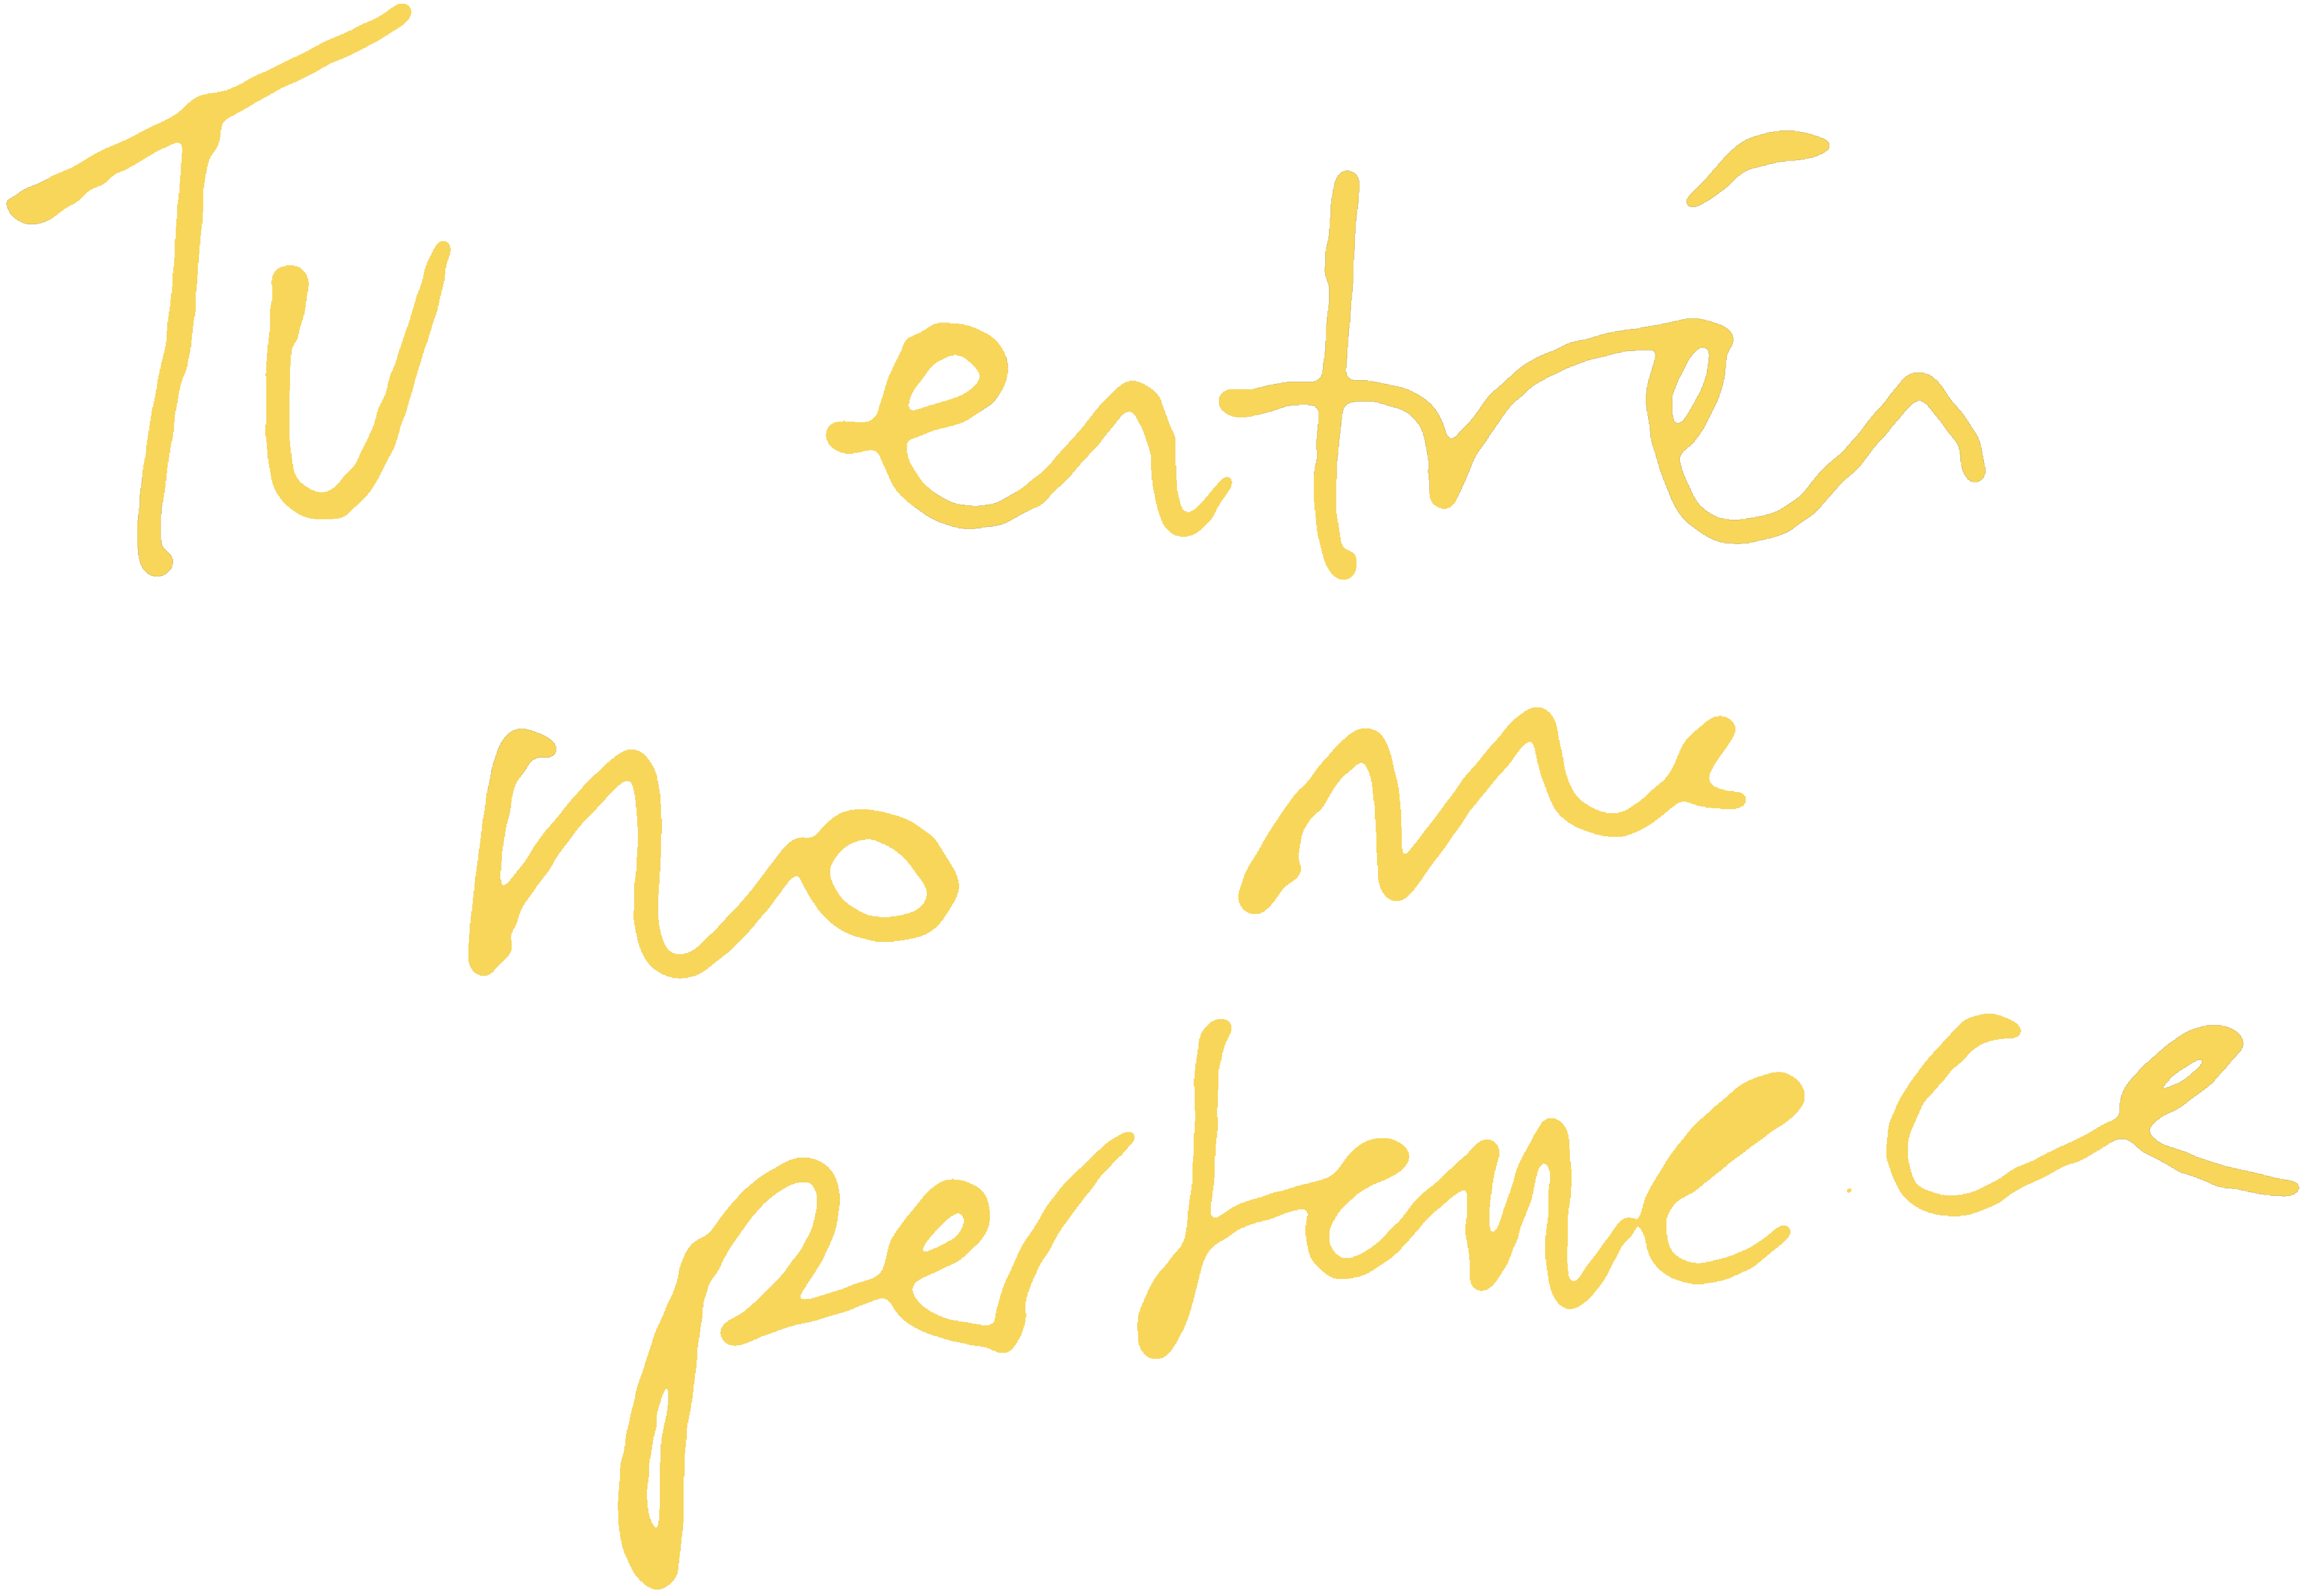 Tu entrén
no me
pertenece